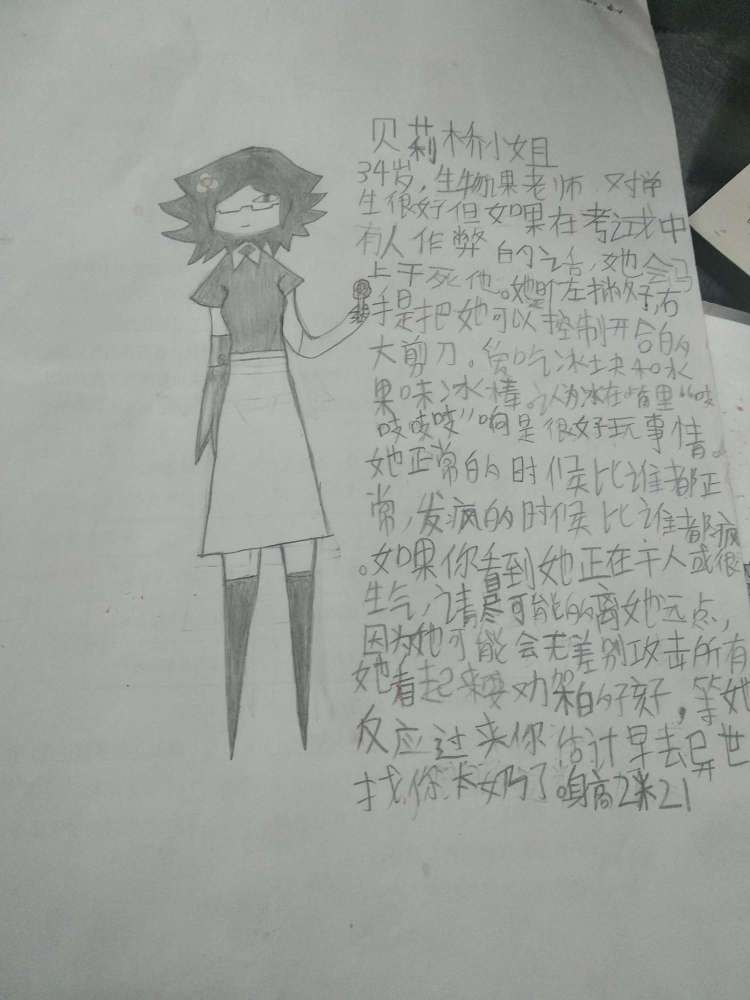 贝莉桥小姐
34岁,生物课老师 对学
生很好但如果在考试中
有人作弊的话,她会马
上干死他。她是左撇子,右
手是把她可以控制开合的
大剪刀。爱吃冰块和水
果味冰棒。认为冰在嘴里“咬
吱吱吱”响是很好玩事情。
她正常的时候比谁都正
常,发疯的时候比谁都疯
。如果你看到她正在干人或很
生气,请尽可能的离她远点,
因为她可能会无差别攻击所有
她看起来要劝架的孩子,等她
反应过来你估计早去异世
找你太奶了。身高2米21